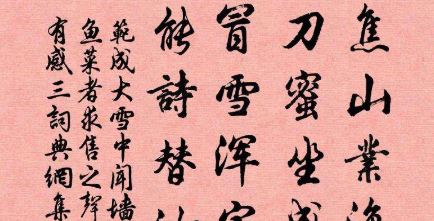 焦山業
刀蜜坐成
冒雪浑
能詩替
範成大雪中聞墻
魚菜者求售之聲
有感三詞典網集